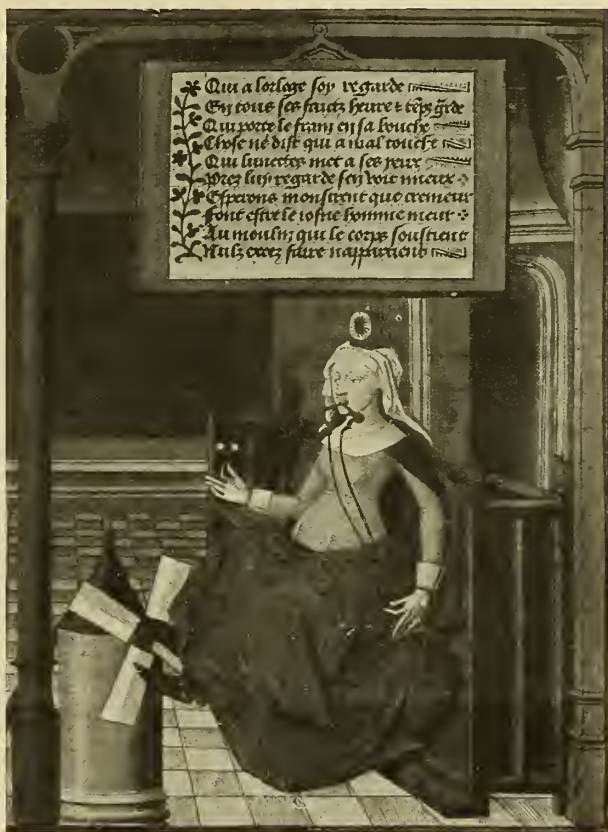 Qui a lorloge soy regarde
En tous ses faictz heure & tēps garde
Qui porte le frain en sa bouche
Chose ne dist qui a mal touche
Qui lunectes met a ses yeux
Prez luy regarde sen voit mieux
Esperons monstrent que cremeur
Font estre le iosne homme meur
Au moulin qui le corps soustient
Nulz excez faire nappartient